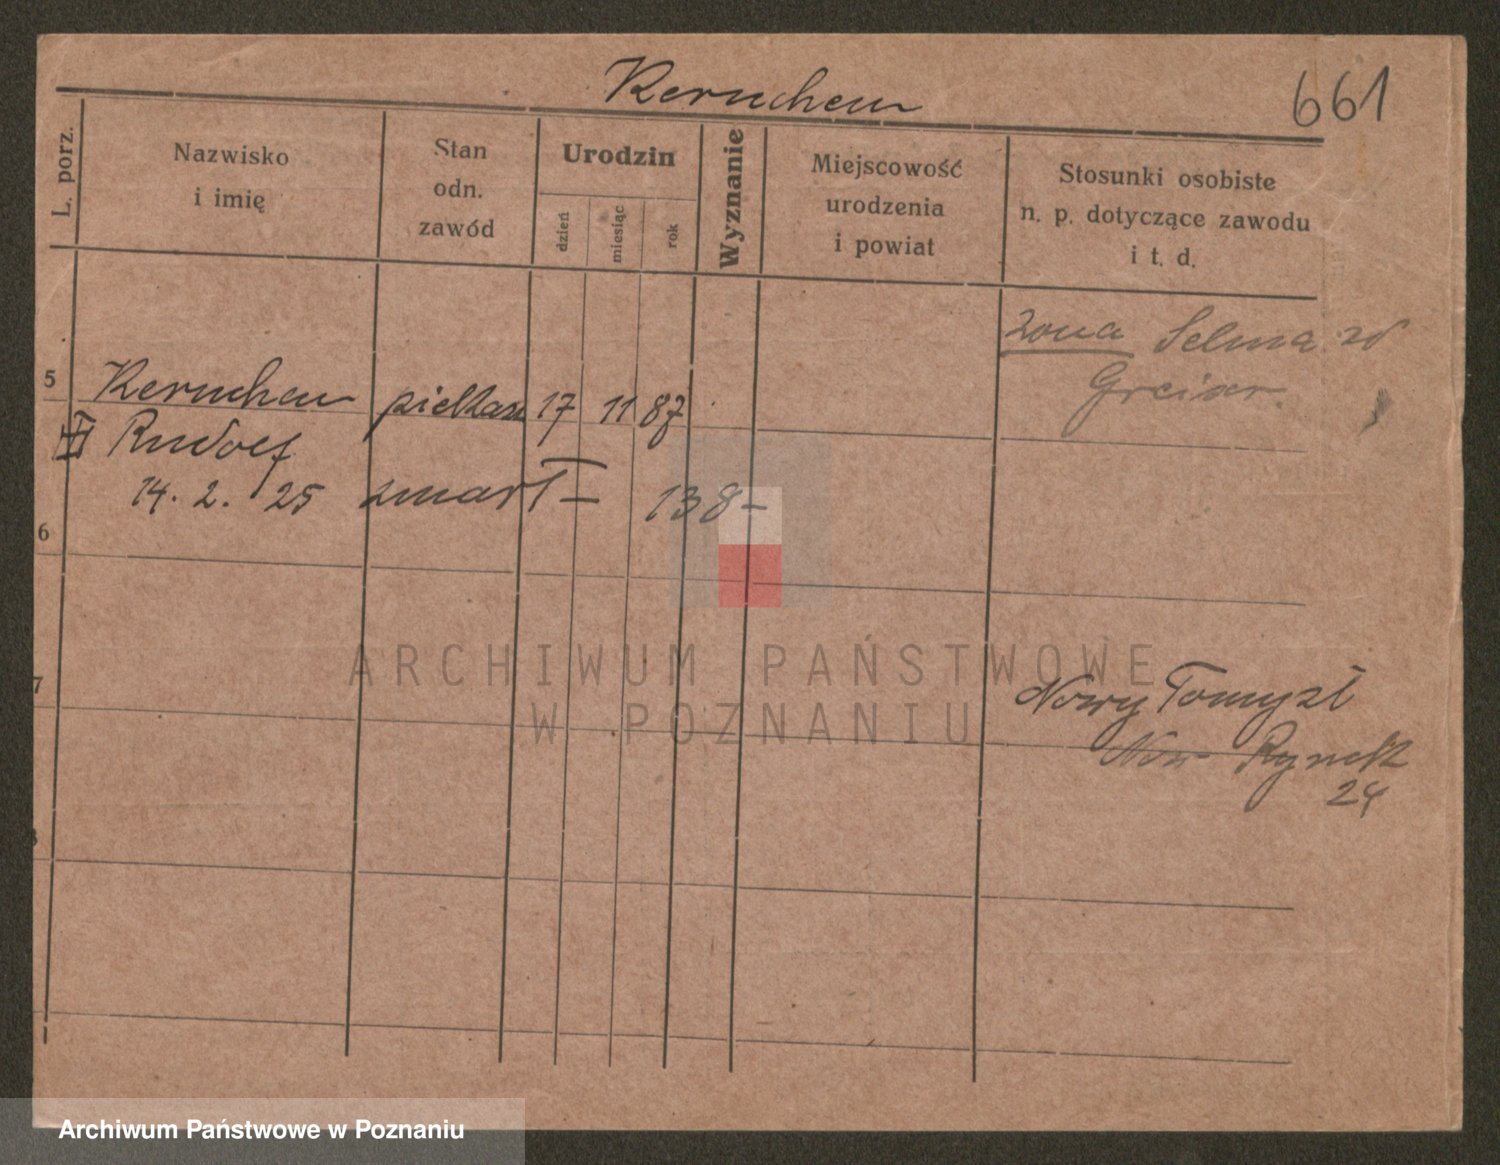 Kernchen
661
L. porz.
Nazwisko
i imię
Stan
odn.
zawód
Urodzin
dzień
miesiąc
rok
Wyznanie
Miejscowość
urodzenia
i powiat
Stosunki osobiste
n. p. dotyczące zawodu
i t. d.
żona Selma zd
Greiser.
5
Kernchen piekarz 17 11 87
Rudolf
14. 2. 25 zmarł — 138 —
6
7
Nowy Tomyśl
Now Rynek
24
ARCHIWUM PAŃSTWOWE
W POZNANIU
Archiwum Państwowe w Poznaniu